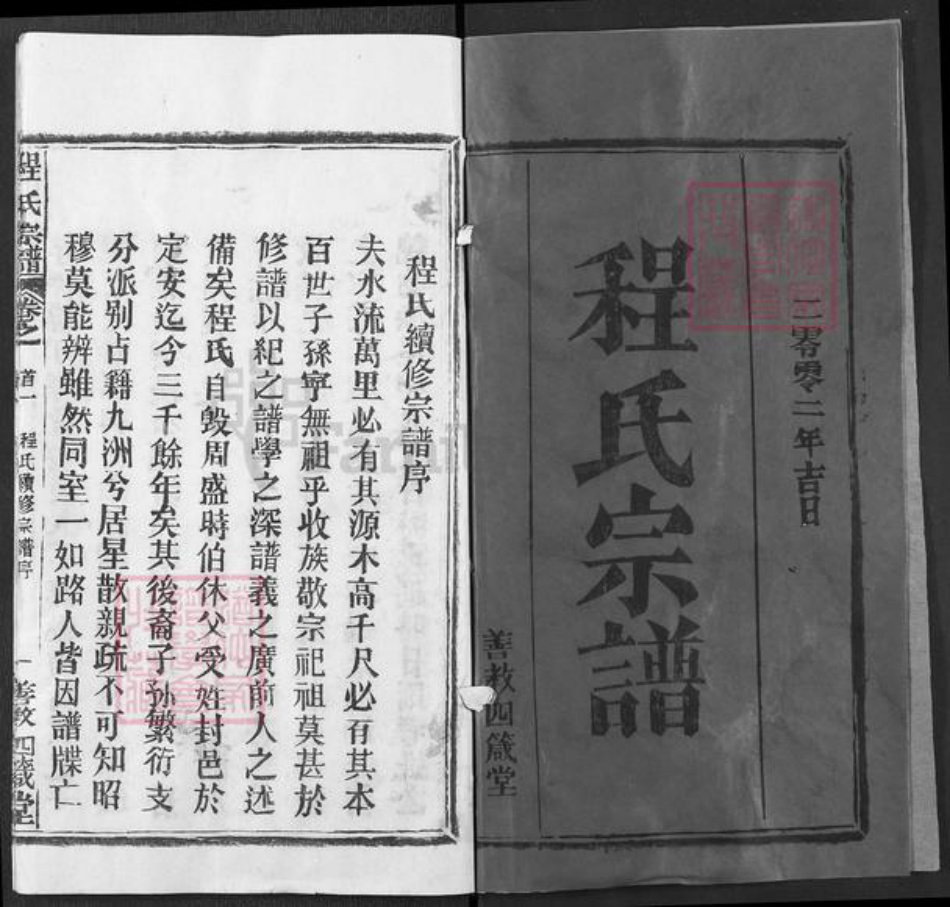 二零零二年吉日
程氏宗譜
善教四箴堂
程氏續修宗譜序
夫水流萬里必有其源木高千尺必有其本
百世子孫寧無祖乎收族敬宗祀祖莫甚於
修譜以紀之譜學之深譜義之廣前人之述
備矣程氏自毀周盛時伯休父受姓封邑於
定安迄今三千餘年矣其後裔子孙繁衍支
分派别占籍九洲兮居星散親疏不可知昭
穆莫能辨雖然同室一如路人皆因譜牒亡
程氏宗譜 卷之一 首一 程氏續修宗譜序 一 善教四箴堂